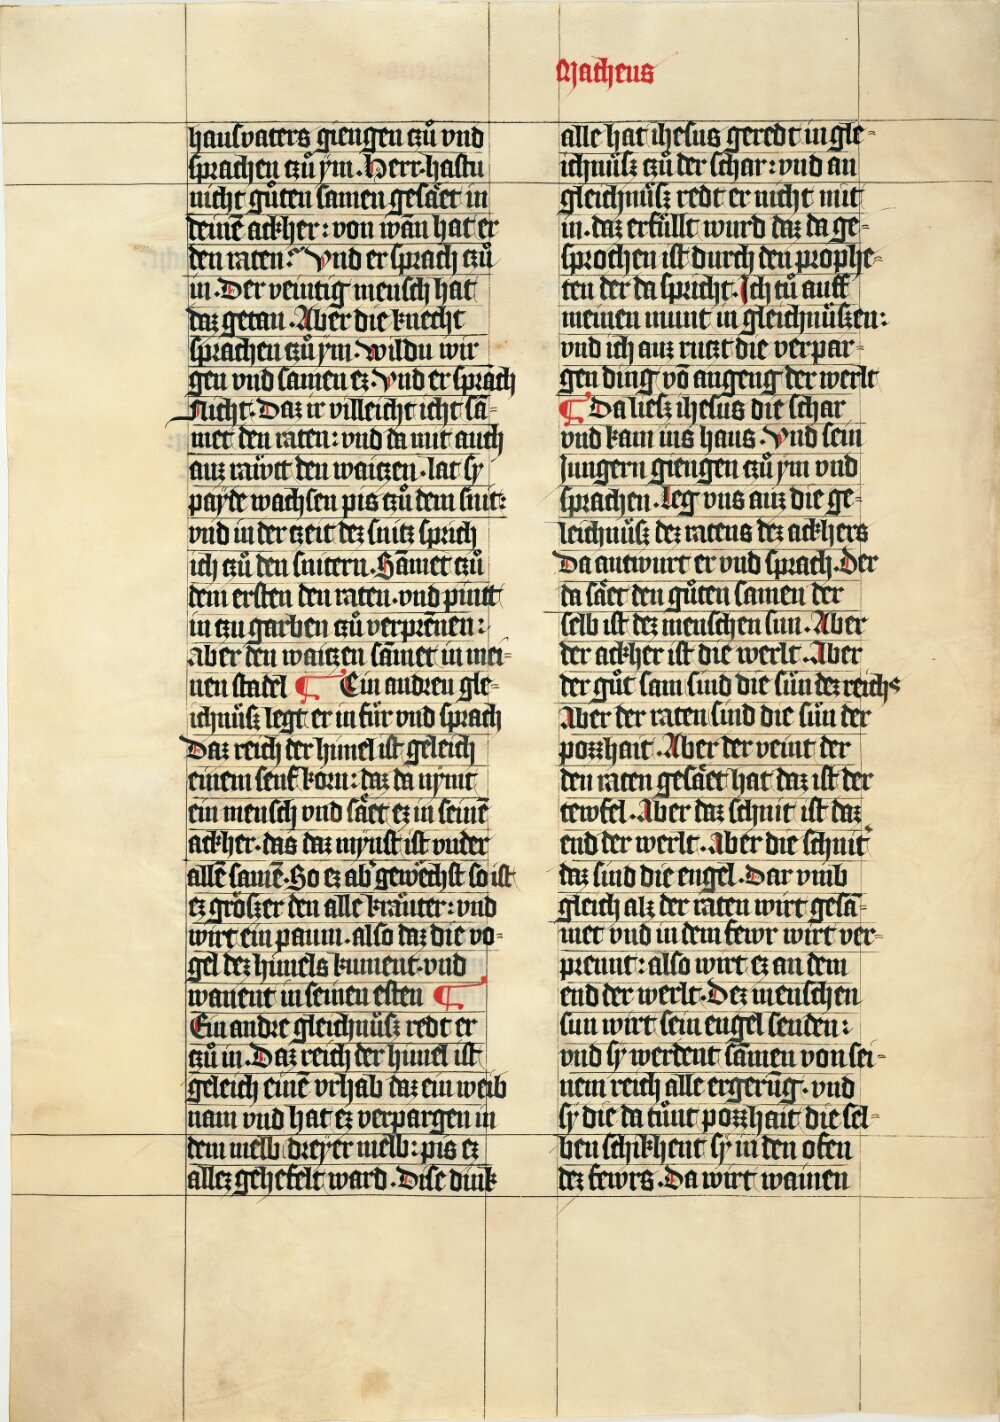 Matheus
hausvaters giengen tzů vnd
sprachen tzů ym. Herr. hastu
nicht gůten samen gesäet in
deinē ackher: von wān hat er
den raten? Vnd er sprach tzů
in. Der veintig mensch hat
daz getan. Aber die knecht
sprachen tzů ym. Wildu wir
gen vnd samen ez. Vnd er sprach
Nicht. Daz ir villeicht icht sā=
met den raten: vnd da mit auch
auz räwtt den waitzen. lat sy
payde wachsen pis tzů dem snit:
vnd in der tzeit dez snitz sprich
ich tzů den snitern. Sāmet tzů
dem ersten den raten. vnd pintt
in tzu garben tzů verprēnen:
Aber den waitzen sāmet in mei=
nen stadel ¶ Ein andren gle=
ichnüsz legt er in für vnd sprach
Daz reich der himel ist geleich
einem senf korn: daz da nymt
ein mensch vnd säet ez in seinē
ackher. das daz mynst ist vnder
allē samē. So ez ab gewechst so ist
ez gröszer den alle kräuter: vnd
wirt ein paum. also daz die vo=
gel dez himels kument. vnd
wanent in seinen esten ¶
Ein andre gleichnüsz redt er
tzů in. Daz reich der himel ist
geleich einē vrhab daz ein weib
nam vnd hat ez verpargen in
dem melb dreyer melb: pis ez
allez gehefelt ward. Dise dink
alle hat ihesus geredt in gle=
ichnüsz tzů der schar: vnd an
gleichnüsz redt er nicht mit
in. daz erfüllt wurd daz da ge=
sprochen ist durch den prophe=
ten der da spricht. Ich tů auff
meinen munt in gleichnüszen:
vnd ich auz rutzt die verpar=
gen ding vō angeng der werlt
¶ Da liesz ihesus die schar
vnd kam ins haus. Vnd sein
Jungern giengen tzů ym vnd
sprachen. Leg vns auz die ge=
leichnüsz dez ratens dez ackhers
Da antwurt er vnd sprach. Der
da säet den gůten samen der
selb ist dez menschen sun. Aber
der ackher ist die werlt. Aber
der gůt sam sind die sün dez reichs
Aber der raten sind die sün der
poszhait. Aber der veint der
den raten gesäet hat daz ist der
tewfel. Aber daz schnit ist daz
end der werlt. Aber die schnit
daz sind die engel. Dar vmb
gleich alz der raten wirt gesā=
met vnd in dem fewr wirt ver=
prennt: also wirt ez an dem
end der werlt. Dez menschen
sun wirt sein engel senden:
vnd sy werdent sāmen von sei=
nem reich alle ergerūg. vnd
sy die da tünt poszhait die sel=
ben schikhent sy in den ofen
dez fewrs. Da wirt wainen